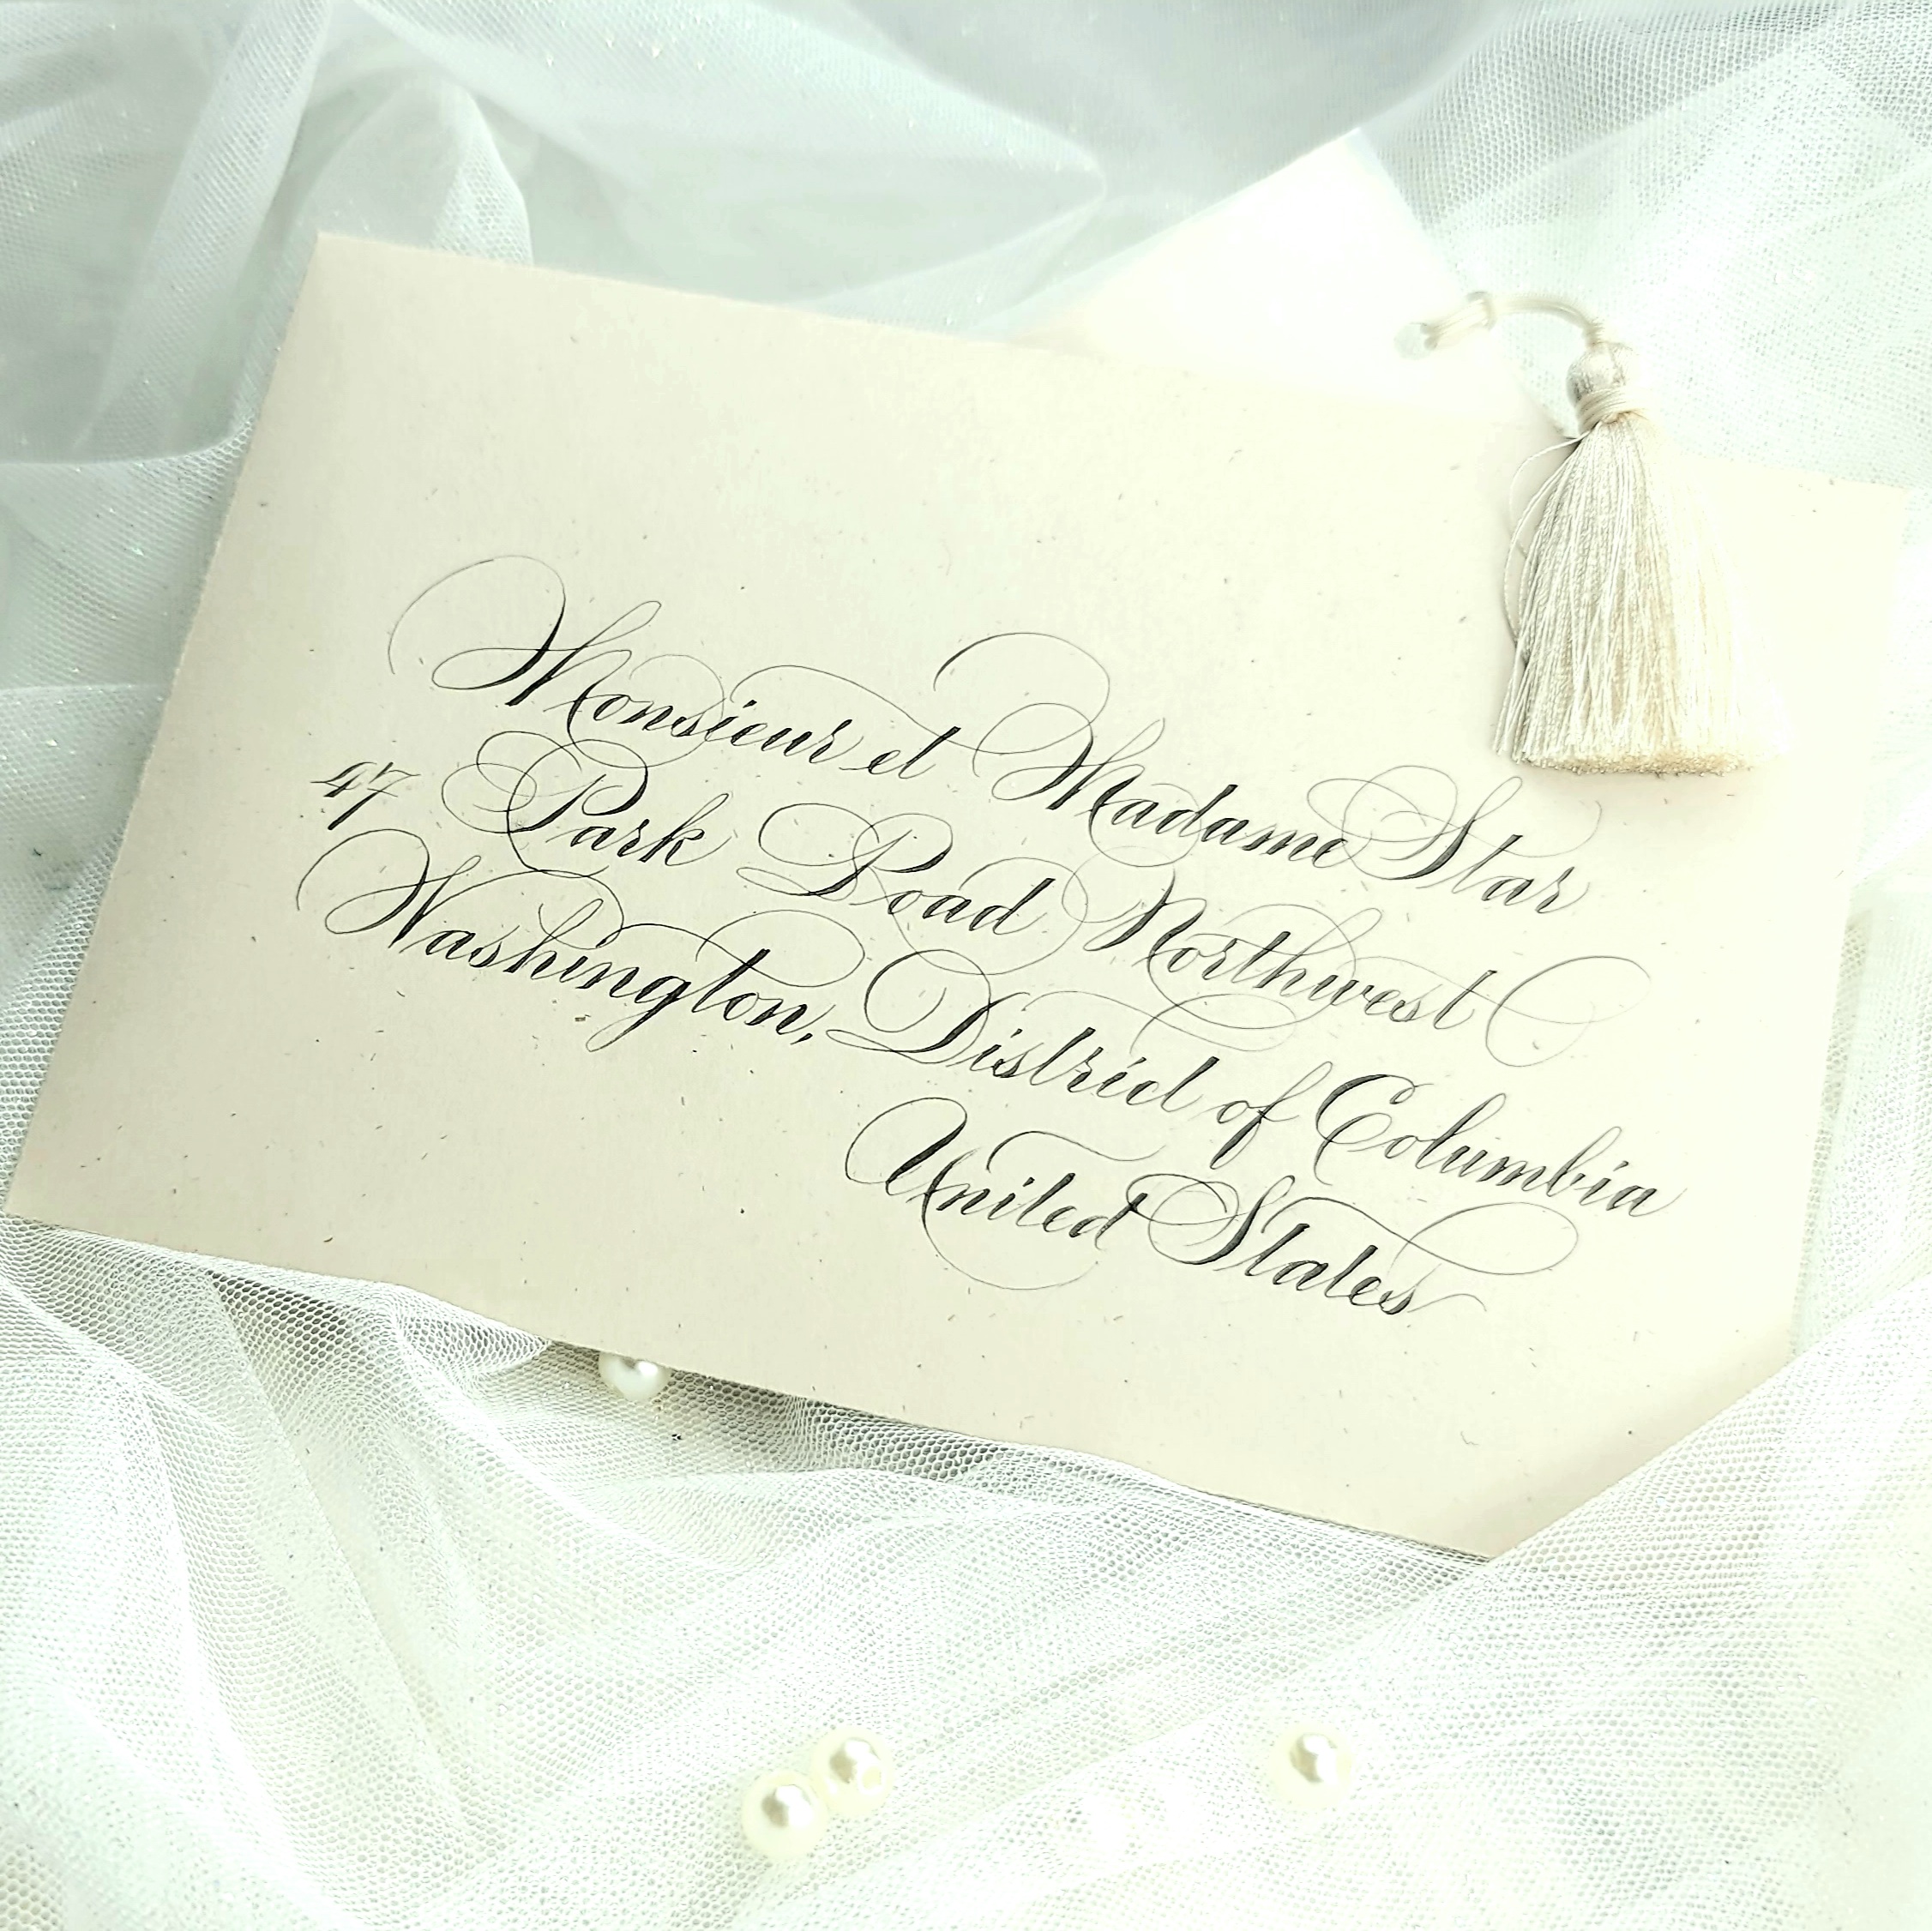 Monsieur et Madame Star
47 Park Road Northwest
Washington, District of Columbia
United States